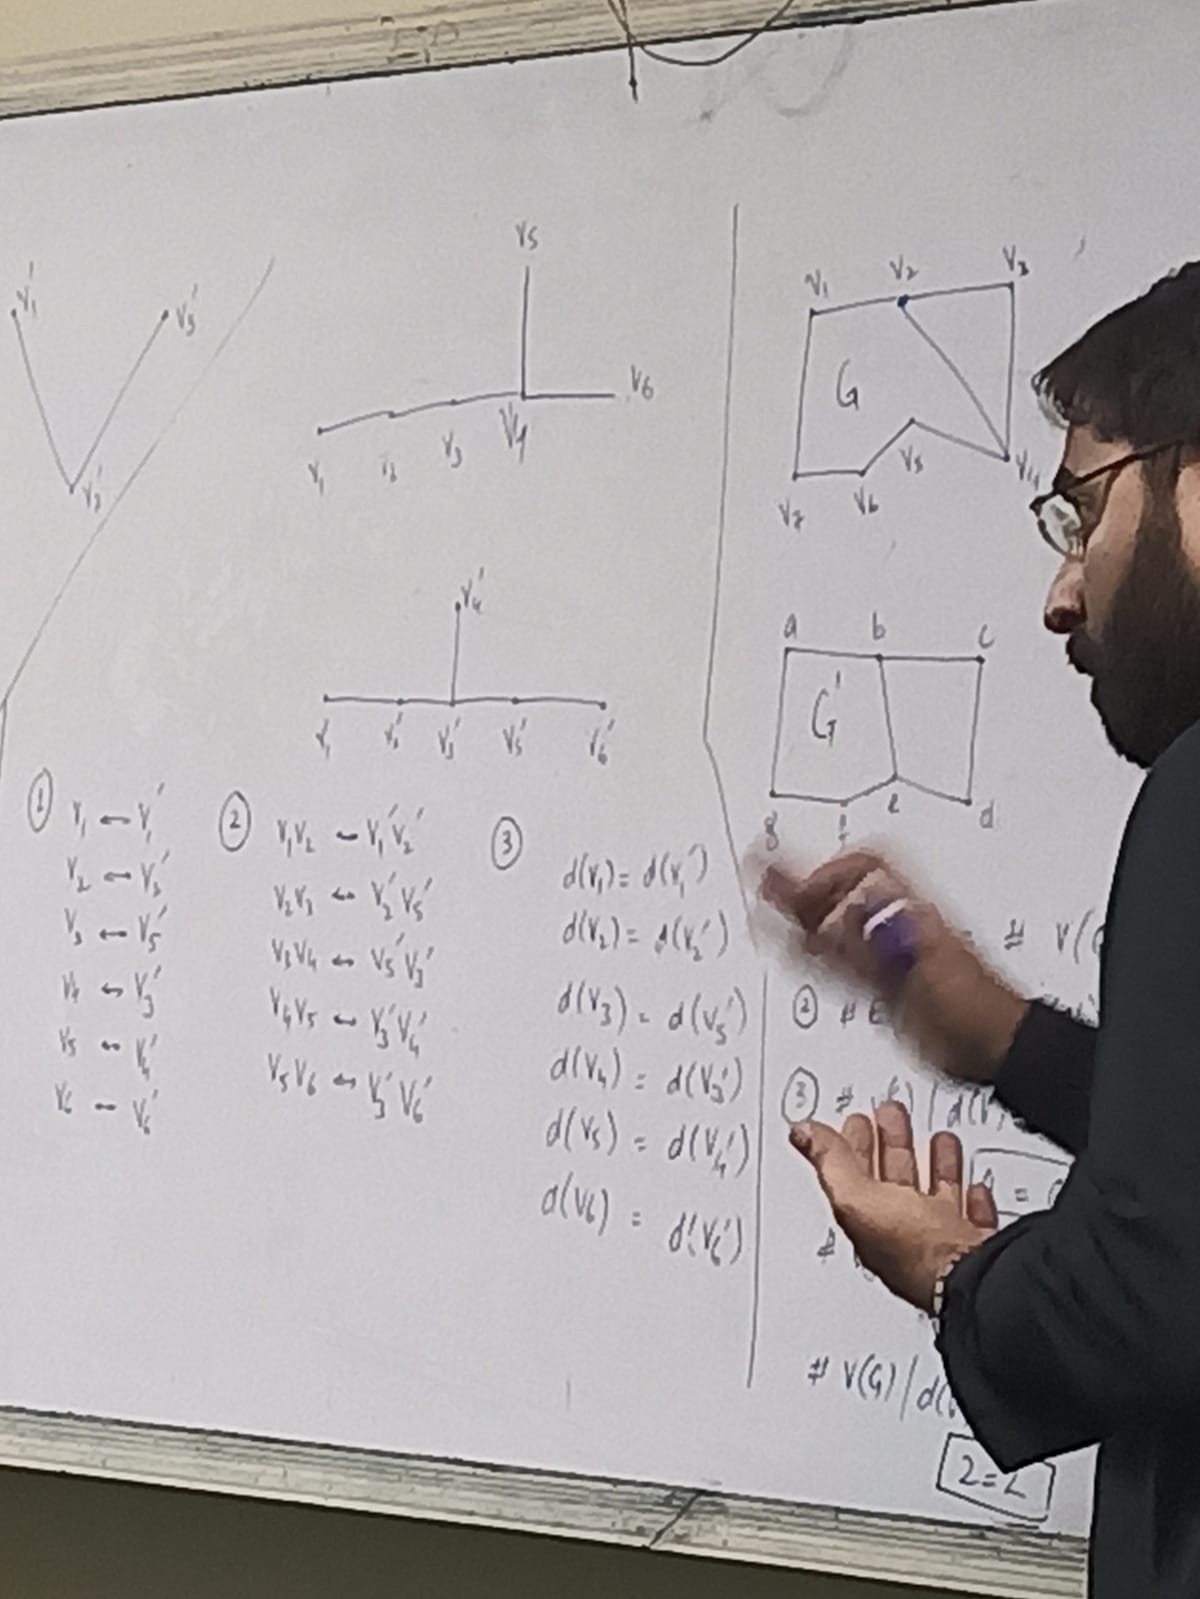 V₁'
V₃'
V₂'
V₅
V₆
V₁ V₂ V₃ V₄
V₄'
V₁' V₂' V₃' V₅' V₆'
① V₁ ↔ V₁'
V₂ ↔ V₂'
V₃ ↔ V₅'
V₄ ↔ V₃'
V₅ ↔ V₄'
V₆ ↔ V₆'
② V₁V₂ ↔ V₁'V₂'
V₂V₃ ↔ V₂'V₅'
V₃V₄ ↔ V₅'V₃'
V₄V₅ ↔ V₃'V₄'
V₅V₆ ↔ V₃'V₆'
③
d(V₁) = d(V₁')
d(V₂) = d(V₂')
d(V₃) = d(V₅')
d(V₄) = d(V₃')
d(V₅) = d(V₄')
d(V₆) = d(V₆')
V₁ V₂ V₃
G
V₇ V₆ V₅ V₄
a b c
G'
g f e d
= # V(
② # E
③ # V(G) / d(V)
#
# V(G) / d(
2=2